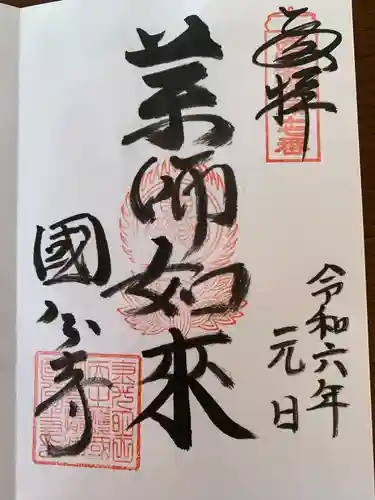 奉拝
令和六年
元日
薬師如来
國分寺